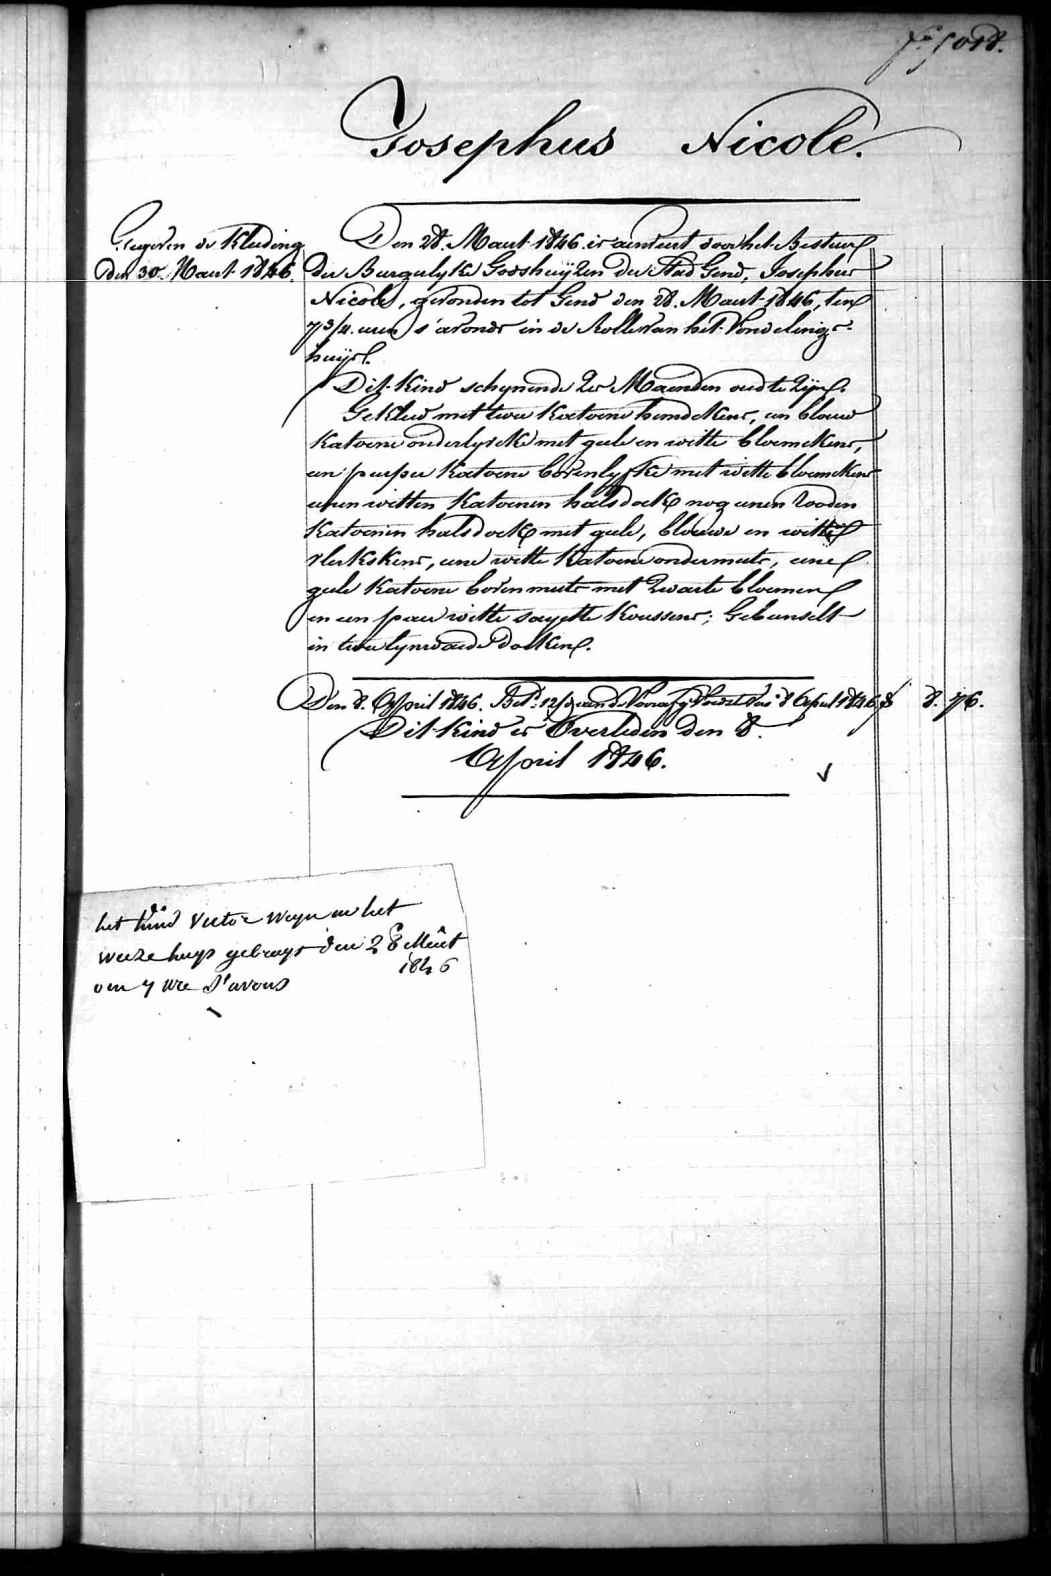 Josephus Nicole.
gegeven de Kleeding
den 30. Maart 1846.
Den 28. Maart 1846. is aenveert door het Bestuer
der Burgelyke Godshuijzen der Stad Gend, Josephus
Nicole, gevonden tot Gend den 28. Maart 1846, ten
7 3/4. uren s'avonds in de Rolle van het Vondelings-
huijs.
Dit Kind schynende 2er Maenden oud te Zijn.
Gekleed met twee Katoene hemdekens, een blauw
Katoene onderlyfke met geele en witte bloemekens,
een purper Katoene bovenlyfke met witte bloemekens
eenen witten Katoenen halsdoek nog eenen Rooden
Katoenen halsdoek met geele, blauwe en witte
vlerkskens, eene witte Katoene ondermuts, eene
geele Katoene bovenmuts met Zwarte bloemen
en een paer witte sayette Koussens; Gebunselt
in twee lynwaede doeken.
Den 8. April 1846. 8 April 1846 8. 76.
Dit Kind is Overleden den 8.
April 1846.
het kind victor weyn in het
weeze huys gebragt den 28 Meirt
1846
om 7 ure S'avons